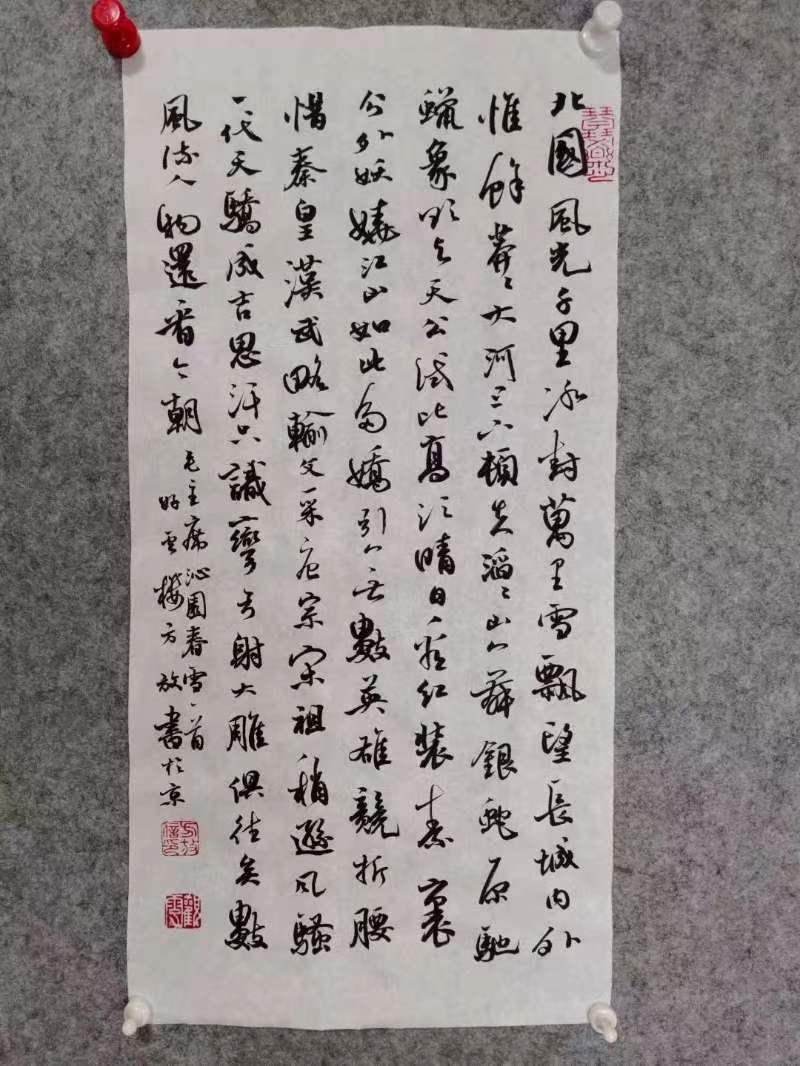 北國風光千里冰封萬里雪飄望長城内外
惟餘莽々大河上下頓失滔々山舞銀蛇原馳
蠟象欲與天公試比高須晴日看紅裝素裹
分外妖嬈江山如此多嬌引無數英雄競折腰
惜秦皇漢武略輸文采唐宗宋祖稍遜風騷
一代天驕成吉思汗只識彎弓射大雕俱往矣數
風流人物還看今朝
毛主席沁園春雪一首
好雲樓方放書於京
方放信印